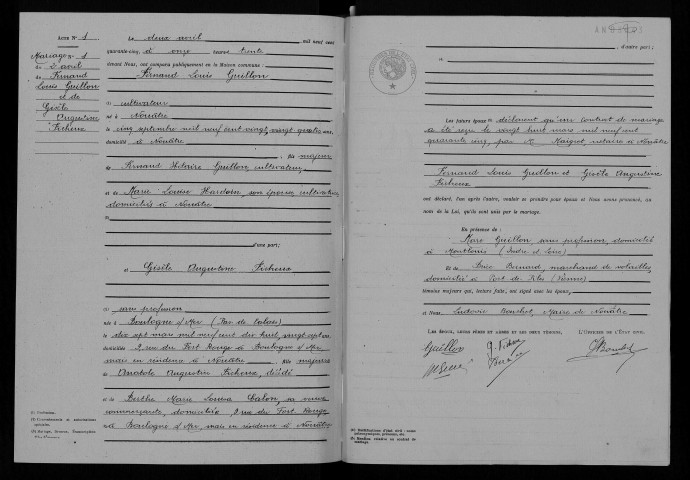 ACTE N° 1
Mariage N° 1
du 2 avril
de Fernand
Louis Guillon
et de
Gisèle
Augustine
Ficheux
Le deux avril mil neuf cent
quarante-cinq, à onze heures trente
devant Nous, ont comparu publiquement en la Maison commune :
Fernand Louis Guillon
(1) cultivateur
né à Nouâtre
le cinq septembre mil neuf cent vingt, vingt quatre ans,
domicilié à Nouâtre
fils majeur
de Fernand Hilaire Guillon, cultivateur
et de Marie Louise Hardoin, son épouse, cultivatrice
domiciliés à Nouâtre
d'une part;
et Gisèle Augustine Ficheux
(1) sans profession
née à Boulogne s/Mer (Pas de Calais)
le dix sept mars mil neuf cent dix huit, vingt sept ans
domiciliée 2 rue du Fort Rouge à Boulogne s/Mer
mais en résidence à Nouâtre fille majeure
de Anatole Augustin Ficheux, décédé
et de Berthe Marie Louisa Calon, sa veuve
commerçante, domiciliée 2 rue du Fort Rouge
à Boulogne s/Mer, mais en résidence à Nouâtre
(1) Profession.
, d'autre part ;
Les futurs époux déclarent qu'un contrat de mariage
a été reçu le vingt huit mars mil neuf cent
quarante cinq, par Me Maigret notaire à Nouâtre
Fernand Louis Guillon et Gisèle Augustine
Ficheux
ont déclaré, l'un après l'autre, vouloir se prendre pour époux et Nous avons prononcé, au
nom de la Loi, qu'ils sont unis par le mariage.
En présence de :
Marc Guillon, sans profession, domicilié
à Montlouis (Indre et Loire)
Et de Bernard marchand de volailles,
domicilié à Port de Piles (Vienne)
témoins majeurs qui, lecture faite, ont signé avec les époux,
et Nous Ludovic Maire de Nouâtre
LES ÉPOUX, LEURS PÈRES ET MÈRES ET LES DEUX TÉMOINS,
L'OFFICIER DE L'ÉTAT CIVIL,
Guillon
G. Ficheux